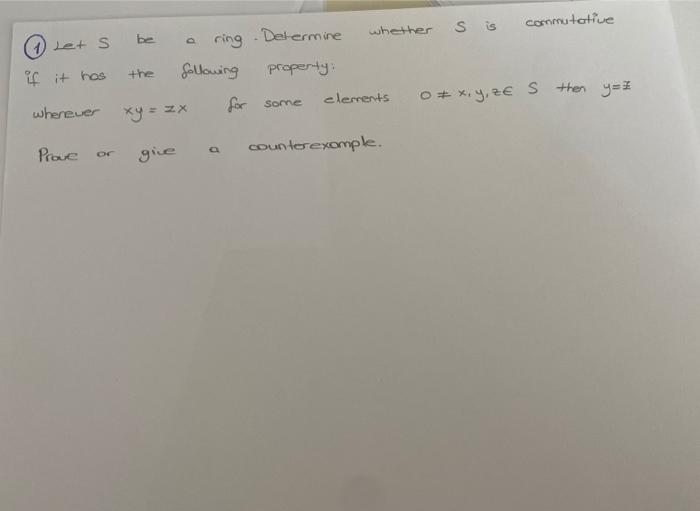 ① Let S be a ring. Determine whether S is commutative
if it has the following property:
wherever xy = zx for some elements 0 ≠ x,y,z ∈ S then y=z
Prove or give a counterexample.